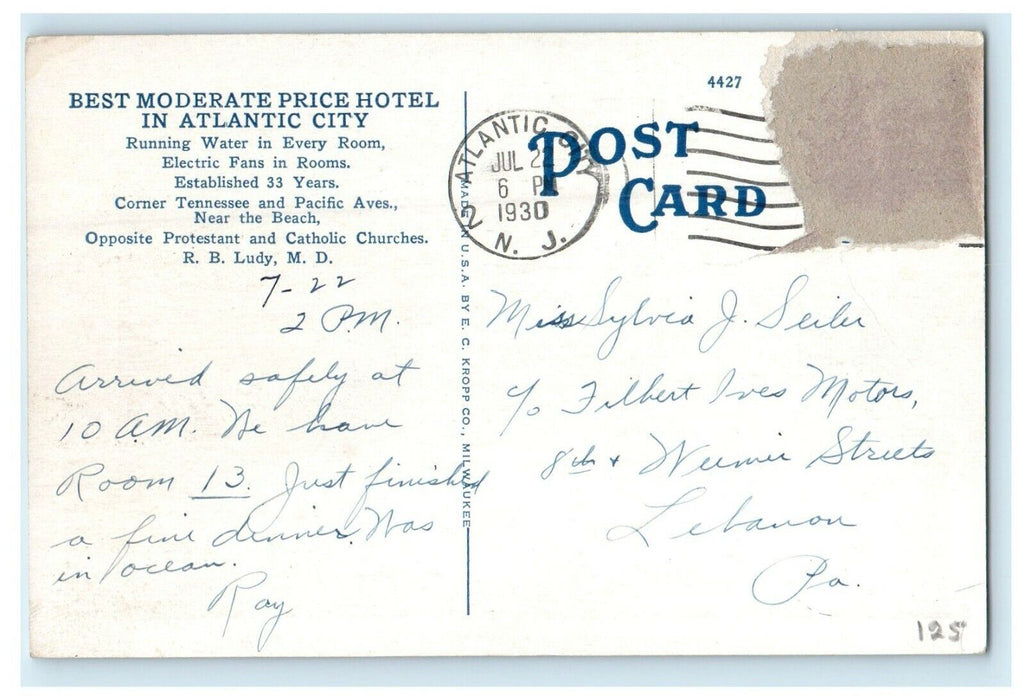 BEST MODERATE PRICE HOTEL
IN ATLANTIC CITY
Running Water in Every Room,
Electric Fans in Rooms.
Established 33 Years.
Corner Tennessee and Pacific Aves.,
Near the Beach,
Opposite Protestant and Catholic Churches.
R. B. Ludy, M. D.
7-22
2 P.M.
Arrived safely at
10 A.M. We have
Room 13. Just finished
a fine dinner. Was
in ocean.
Ray
MADE IN U.S.A. BY E. C. KROPP CO., MILWAUKEE
4427
POST
CARD
ATLANTIC CITY
JUL 22
6 PM
1930
2 N. J.
Miss Sylvia J. Seiler
c/o Filbert Ives Motors,
8th + Streets
Lebanon
Pa.
125